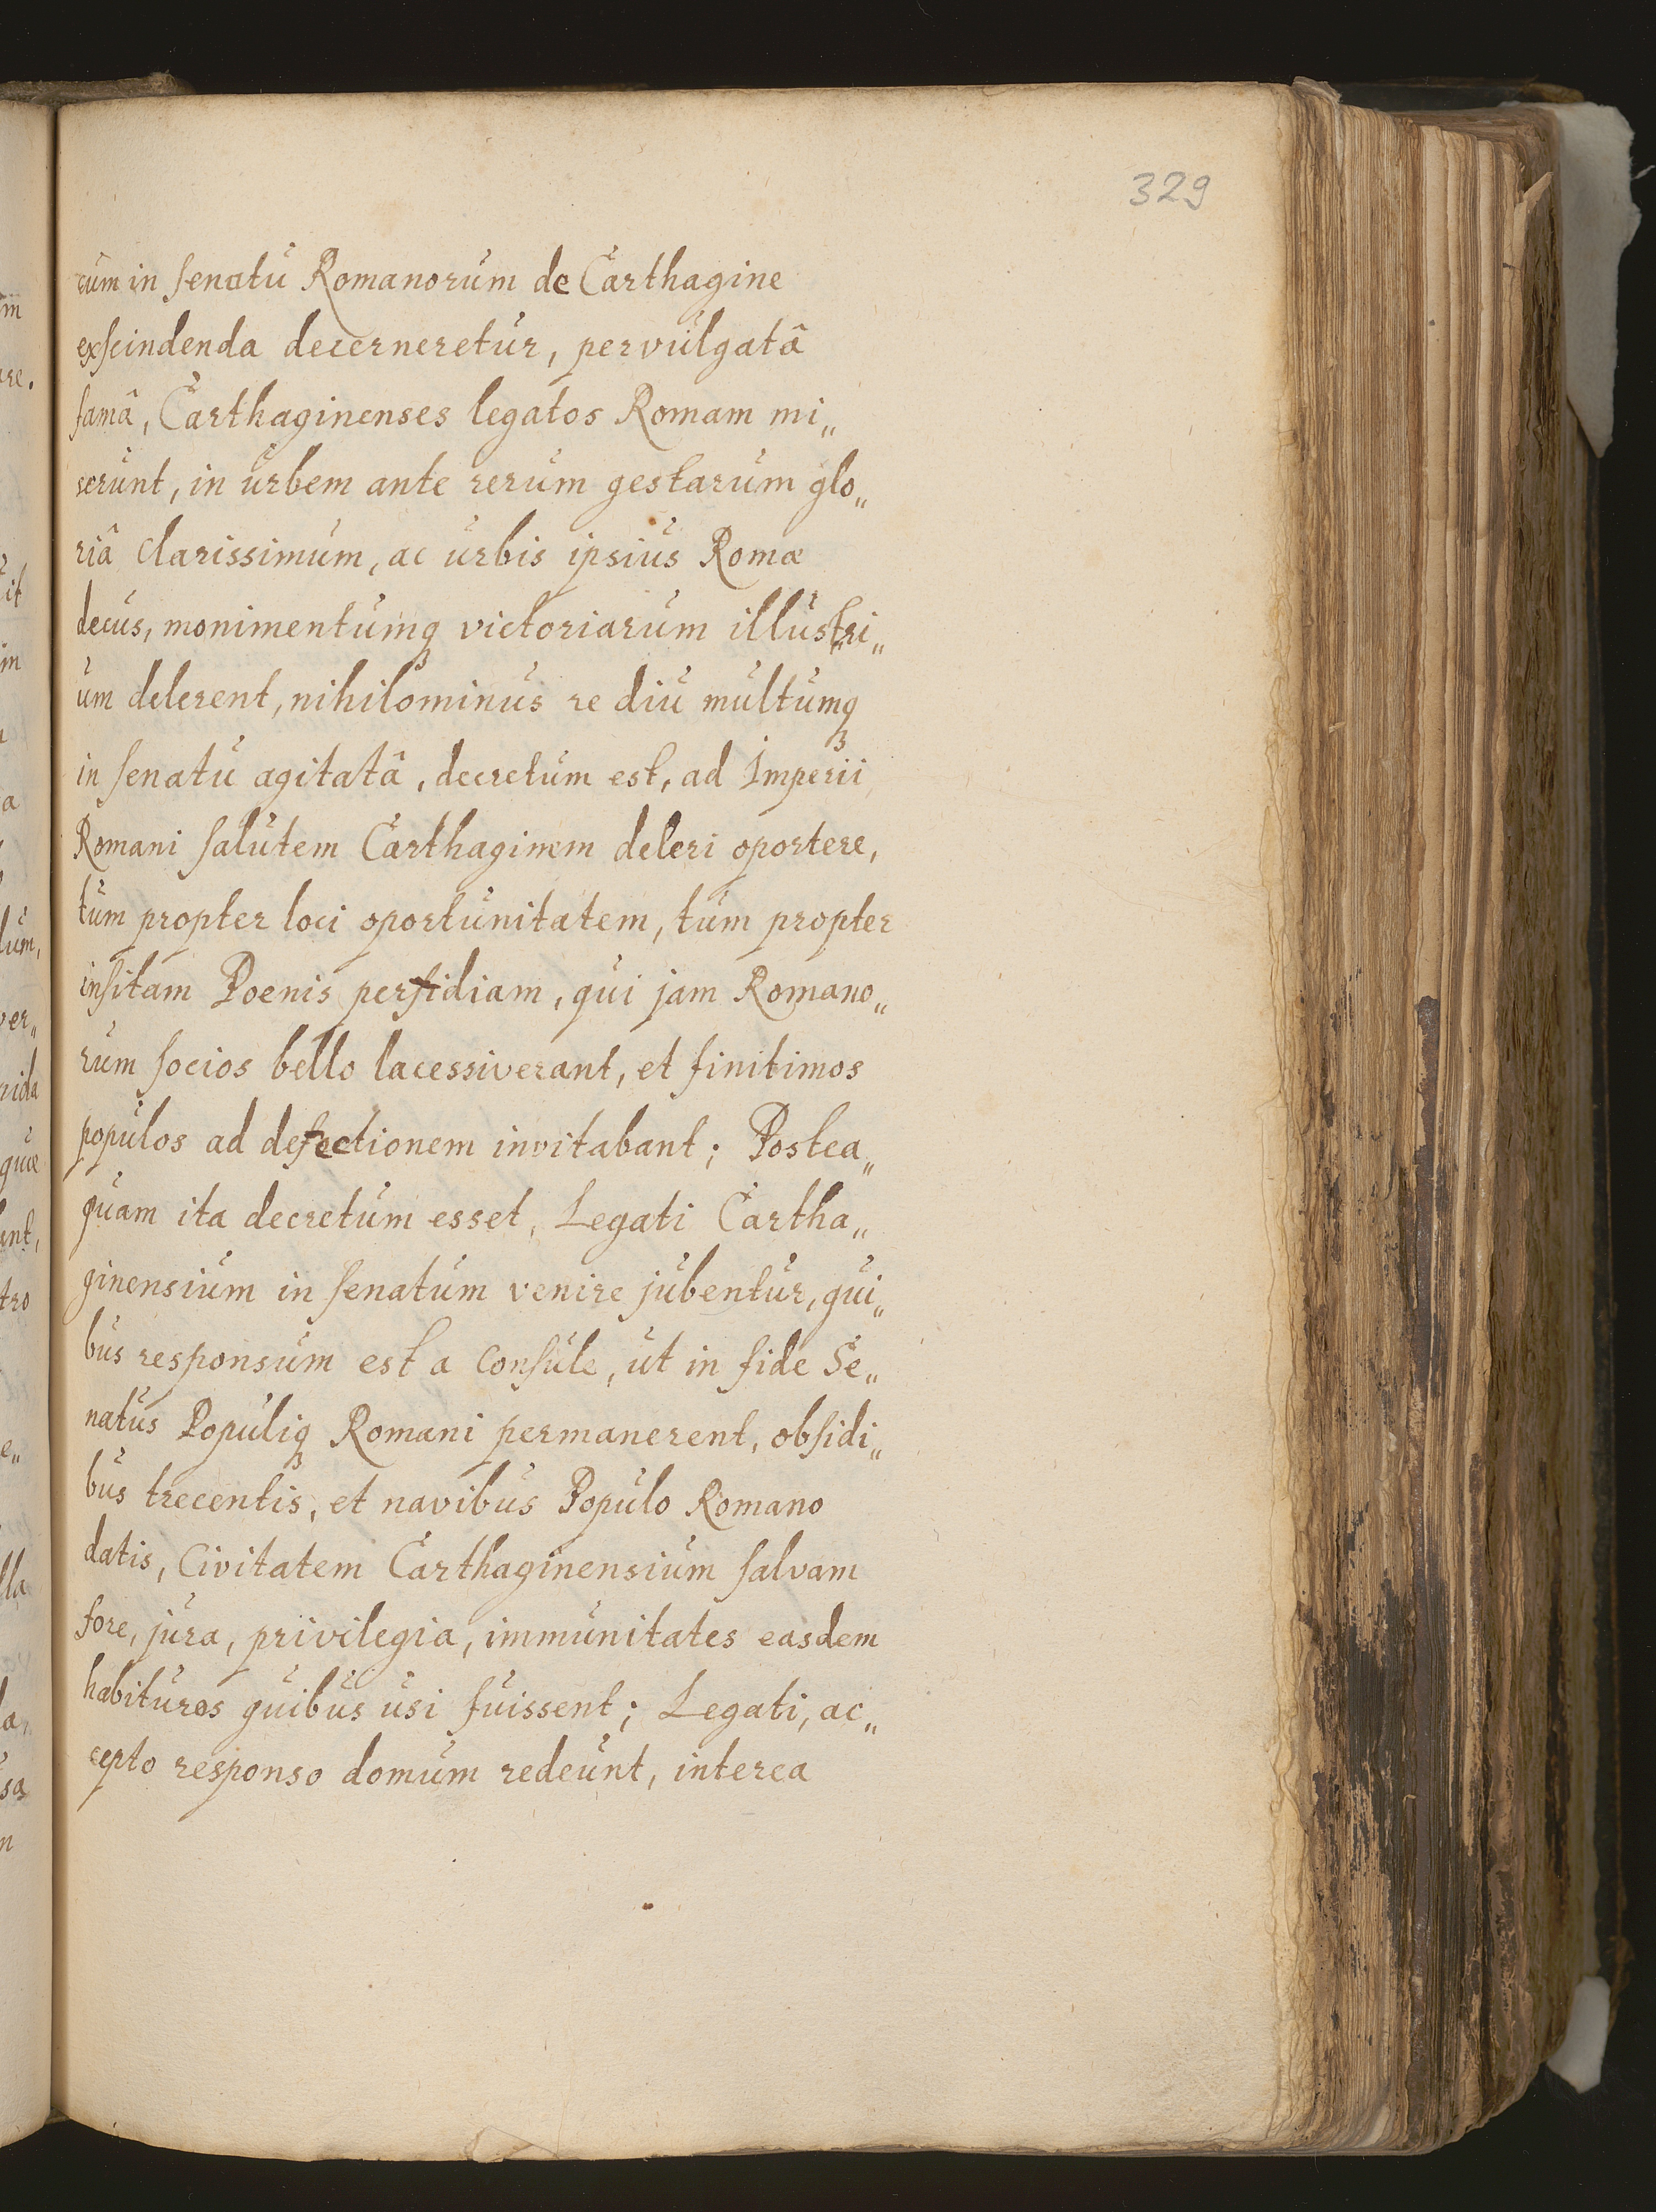 329
cum in senatu Romanorum de Carthagine
exscindenda decerneretur, pervulgatâ
famâ, Carthaginenses legatos Romam mi„
serunt, in urbem ante rerum gestarum glo„
riâ clarissimum, ac urbis ipsius Romæ
decus, monimentumq3 victoriarum illustri„
um delerent, nihilominus re diu multumq3
in senatu agitatâ, decretum est, ad Imperii
Romani salutem Carthaginem deleri oportere,
tum propter loci oportunitatem, tum propter
insitam Poenis perfidiam, qui jam Romano„
rum socios bello lacessiverant, et finitimos
populos ad defectionem invitabant; Postea„
quam ita decretum esset, Legati Cartha„
ginensium in senatum venire jubentur, qui„
bus responsum est a Consule, ut in fide Se„
natus Populiq3 Romani permanerent, obsidi„
bus trecentis, et navibus Populo Romano
datis, Civitatem Carthaginensium salvam
fore, jura, privilegia, immunitates easdem
habituros quibus usi fuissent; Legati, ac„
cepto responso domum redeunt, interea